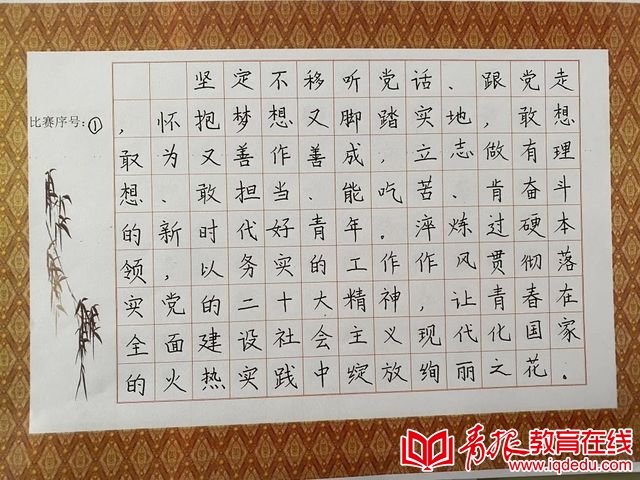 坚定不移听党话、跟党走
比赛序号:①
，怀抱梦想又脚踏实地，敢想
敢为又善作善成，立志做有理
想、敢担当、能吃苦、肯奋斗
的新时代好青年。淬炼过硬本
领，以务实的工作作风贯彻落
实党的二十大精神，让青春在
全面建设社会主义现代化国家
的火热实践中绽放绚丽之花。
青报教育在线
www.iqdedu.com